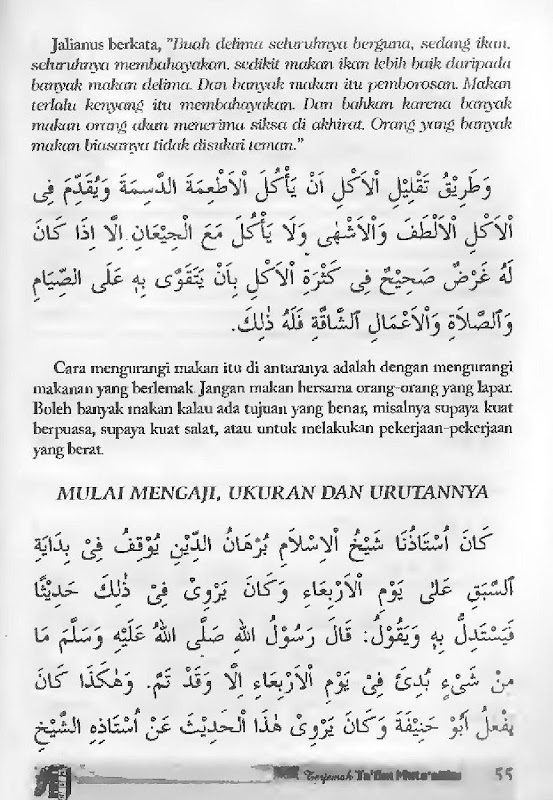 Jalianus berkata, "Buah delima seluruhnya berguna, sedang ikan,
seluruhnya membahayakan. sedikit makan ikan lebih baik daripada
banyak makan delima. Dan banyak makan itu pemborosan. Makan
terlalu kenyang itu membahayakan. Dan bahkan karena banyak
makan orang akan menerima siksa di akhirat. Orang yang banyak
makan biasanya tidak disukai teman."
وَطَرِيْقُ تَقْلِيْلِ الْاَكْلِ اَنْ يَأْكُلَ الْاَطْعِمَةَ الدَّسِمَةَ وَيُقَدِّمَ فِى
الْاَكْلِ الْاَلْطَفَ وَالْاَشْهٰى وَلَا يَأْكُلَ مَعَ الْجِيْعَانِ اِلَّا اِذَا كَانَ
لَهُ غَرْضٌ صَحِيْحٌ فِى كَثْرَةِ الْاَكْلِ بِاَنْ يَتَقَوَّى بِهِ عَلَى الصِّيَامِ
وَالصَّلَاةِ وَالْاَعْمَالِ الشَّاقَّةِ فَلَهُ ذٰلِكَ.
Cara mengurangi makan itu di antaranya adalah dengan mengurangi
makanan yang berlemak. Jangan makan bersama orang-orang yang lapar.
Boleh banyak makan kalau ada tujuan yang benar, misalnya supaya kuat
berpuasa, supaya kuat salat, atau untuk melakukan pekerjaan-pekerjaan
yang berat.
MULAI MENGAJI, UKURAN DAN URUTANNYA
كَانَ اُسْتَاذُنَا شَيْخُ الْاِسْلَامِ بُرْهَانُ الدِّيْنِ يُوْقِفُ فِيْ بِدَايَةِ
السَّبَقِ عَلٰى يَوْمِ الْاَرْبِعَاءِ وَكَانَ يَرْوِىْ فِيْ ذٰلِكَ حَدِيْثًا
فَيَسْتَدِلُّ بِهِ وَيَقُوْلُ: قَالَ رَسُوْلُ اللهِ صَلَّى اللهُ عَلَيْهِ وَسَلَّمَ مَا
مِنْ شَىْءٍ بُدِئَ فِيْ يَوْمِ الْاَرْبِعَاءِ اِلَّا وَقَدْ تَمَّ. وَهٰكَذَا كَانَ
يَفْعَلُ اَبُوْ حَنِيْفَةَ وَكَانَ يَرْوِىْ هٰذَا الْحَدِيْثَ عَنْ اُسْتَاذِهِ الشَّيْخِ
Terjemah Ta'lim Muta'allim 55